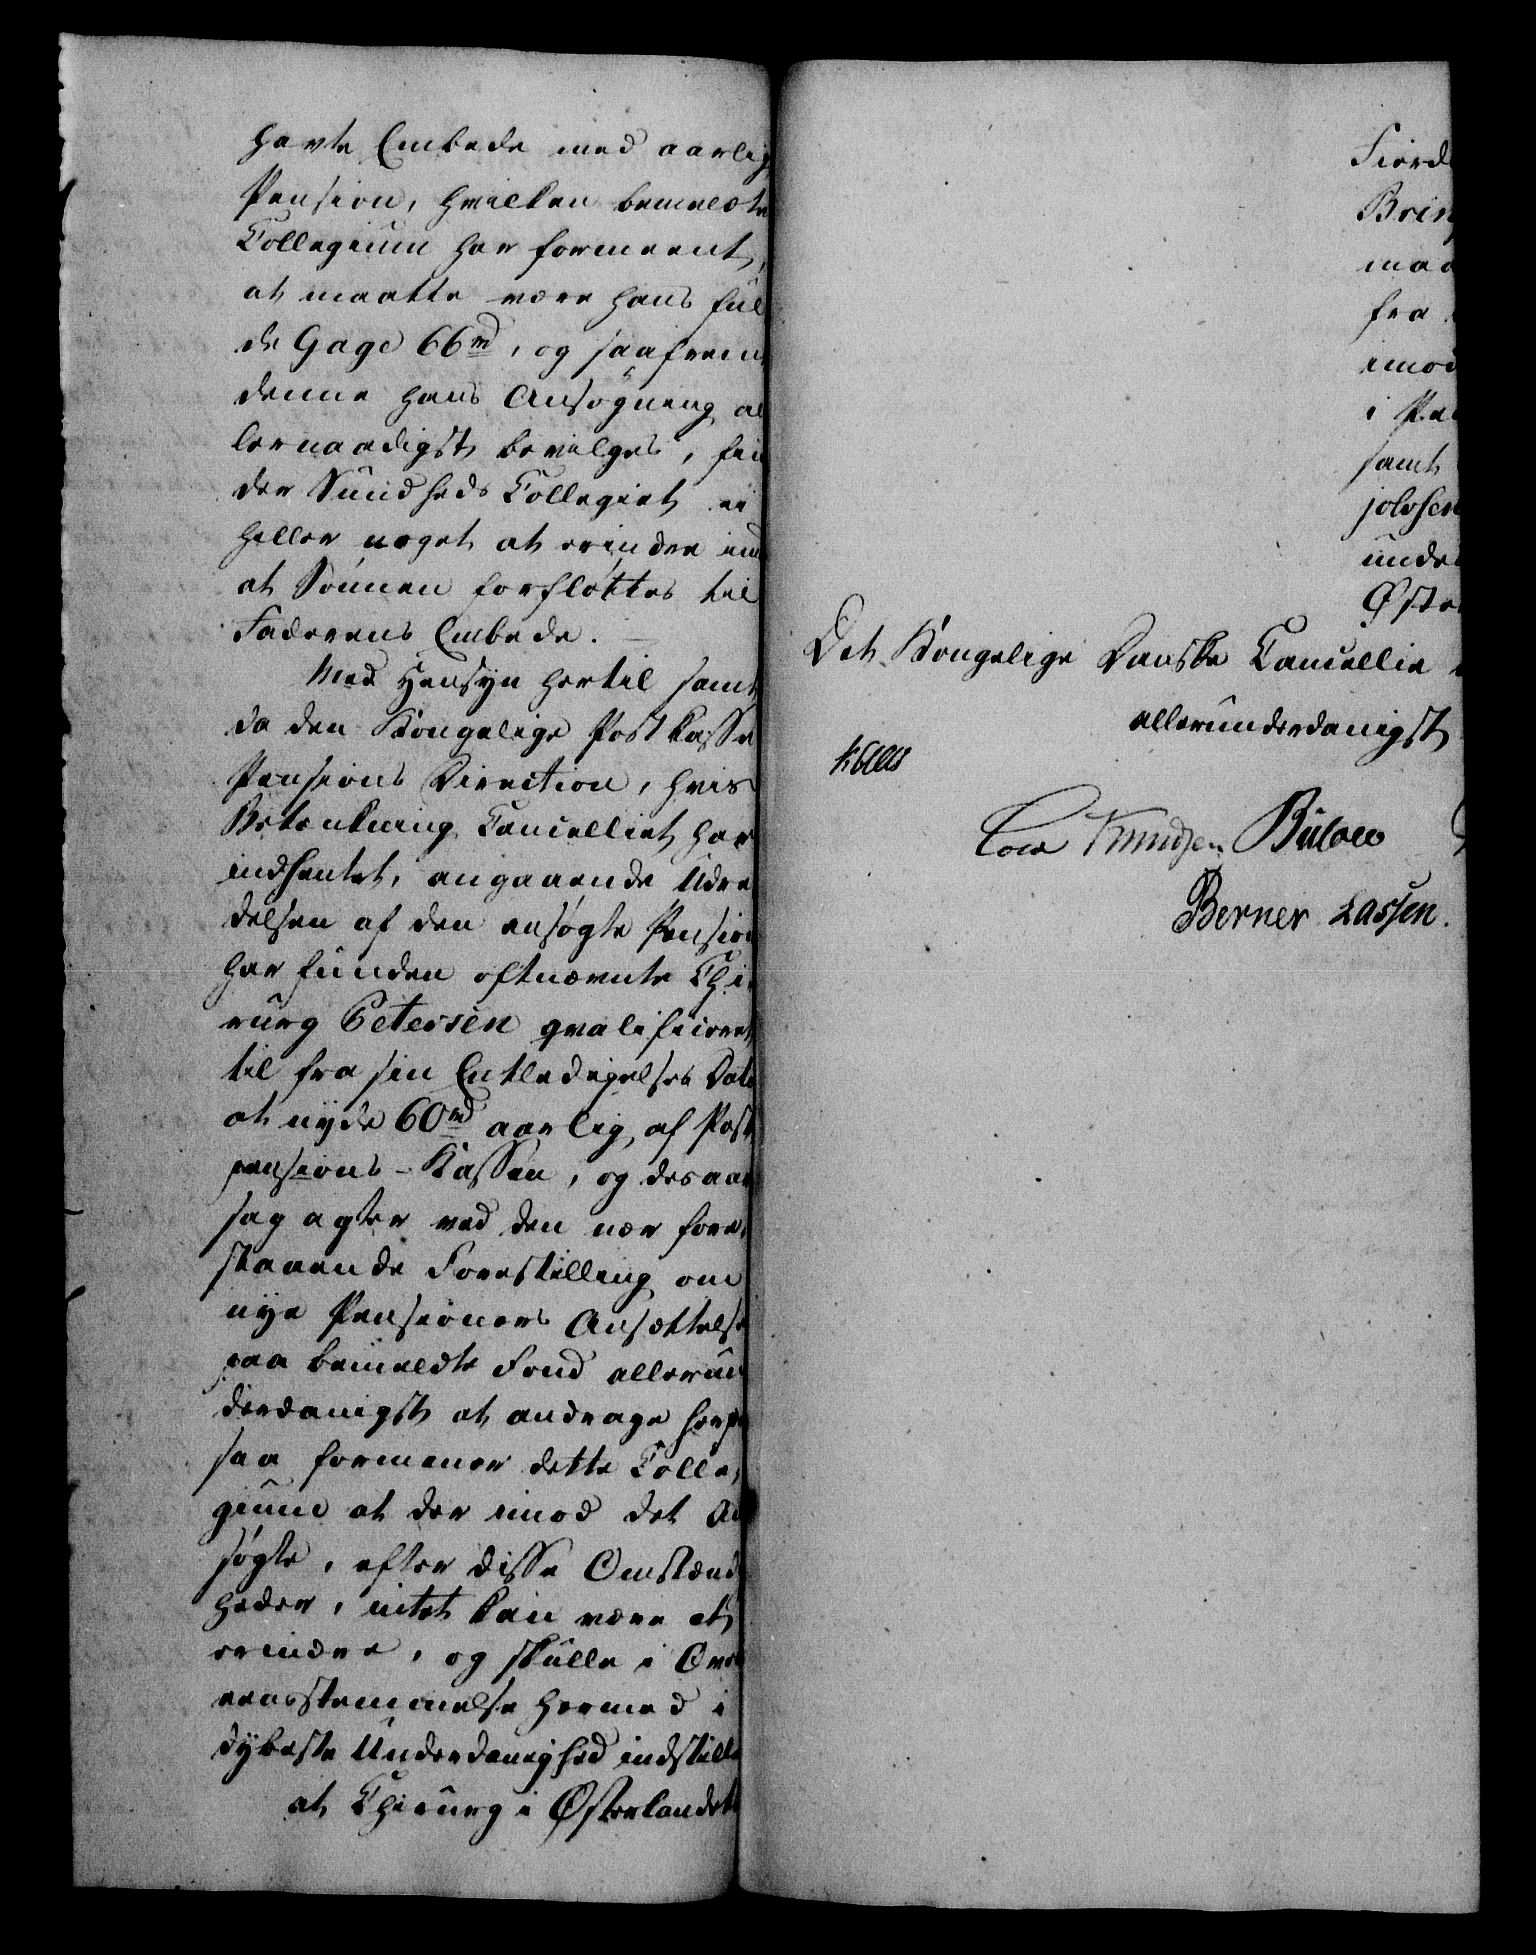 havte Embede med aarlig
Pension, hvilken bemeldte
Collegium har formeent,
at maatte være hans ful
de Gage 66rd, og saafrem
denne hans Ansøgning al
lernaadigst bevilges, fin
der Sundheds Collegiet ei
heller noget at erindre imod
at Sønnen forfløttes til
Faderens Embede. —
Med Hensyn hertil samt
da den Kongelige Post Casse
Pensions Direction, hvis
Betænkning Cancelliet har
indhentet, angaaende Udre
delsen af den ansøgte Pension
har funden oftnævnte Chi
rurg Petersen qvalificeret
til fra sin Entledigelses Dato
at nyde 60rd aarlig, af Post
pensions-Kassen, og desaar
sag agter ved den nær fore
staaende Forestilling om
nye Pensioners Ansættelse
paa bemeldte Fond allerun
derdanigst at andrage herpaa
saa formener dette Colle
gium at der imod det An
søgte, efter disse Omstænd
heder, intet kan være at
erindre, og skulle i Over
eensstemmelse hermed i
dybeste Underdanighed indstille
at Chirurg i Østerlandets
Fierd
Brin
maa
fra
imod
i Pen
samt
jolvsen
under
Øster
Det Kongelige Danske Cancellie
allerunderdanigst
Kaas
Cold Knudsen Bülow
Berner Lassen.